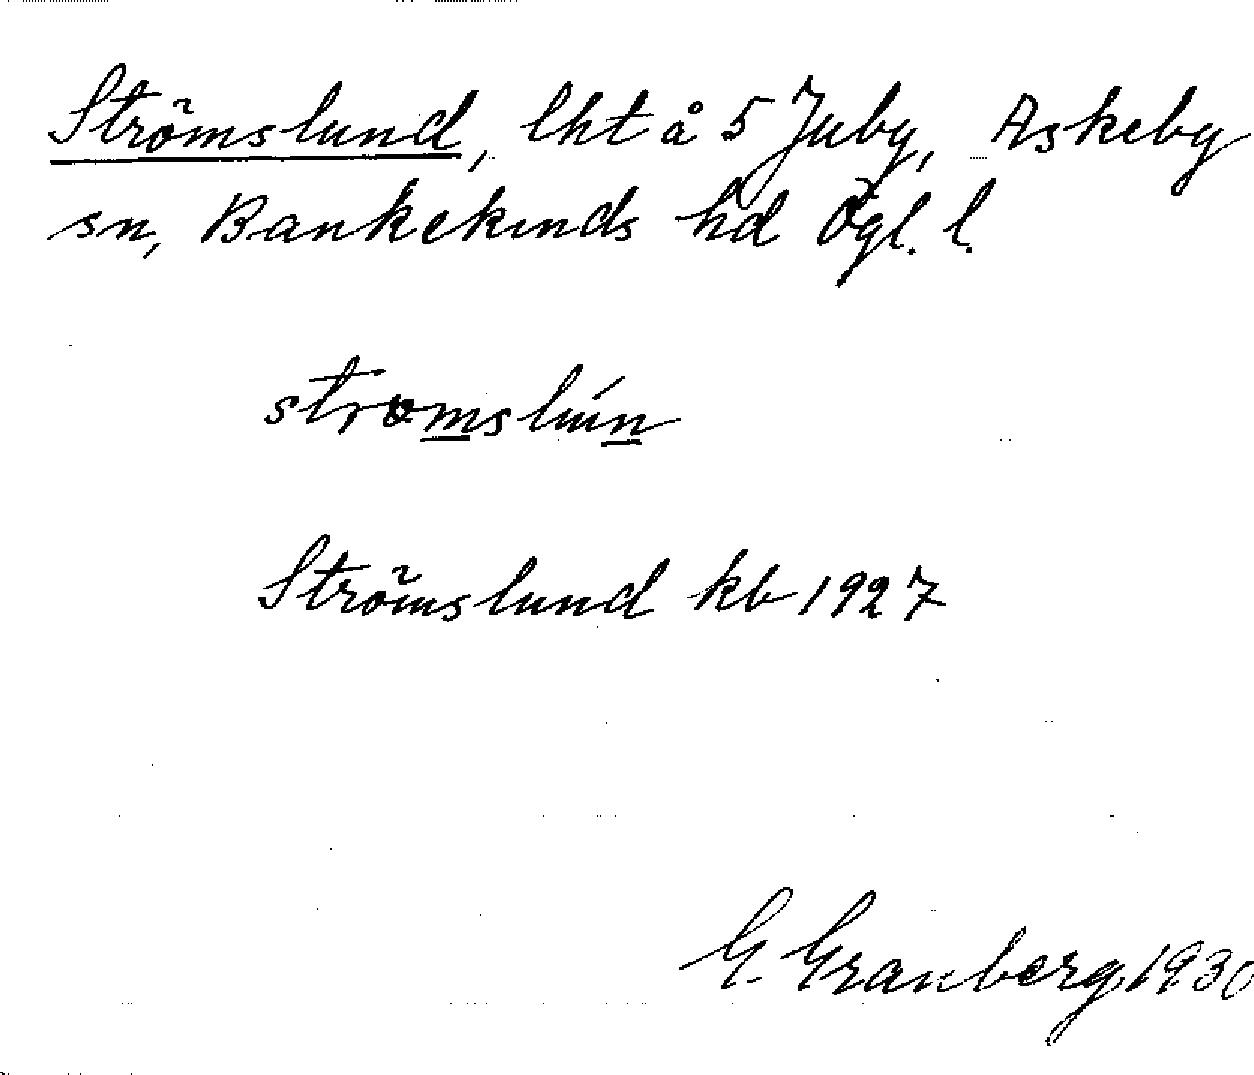 Strömslund, lht å 5 Juby, Askeby
sn, Bankekinds hd Ögl. l.
strømslún
Strömslund kb 1927
G. Granberg 1930